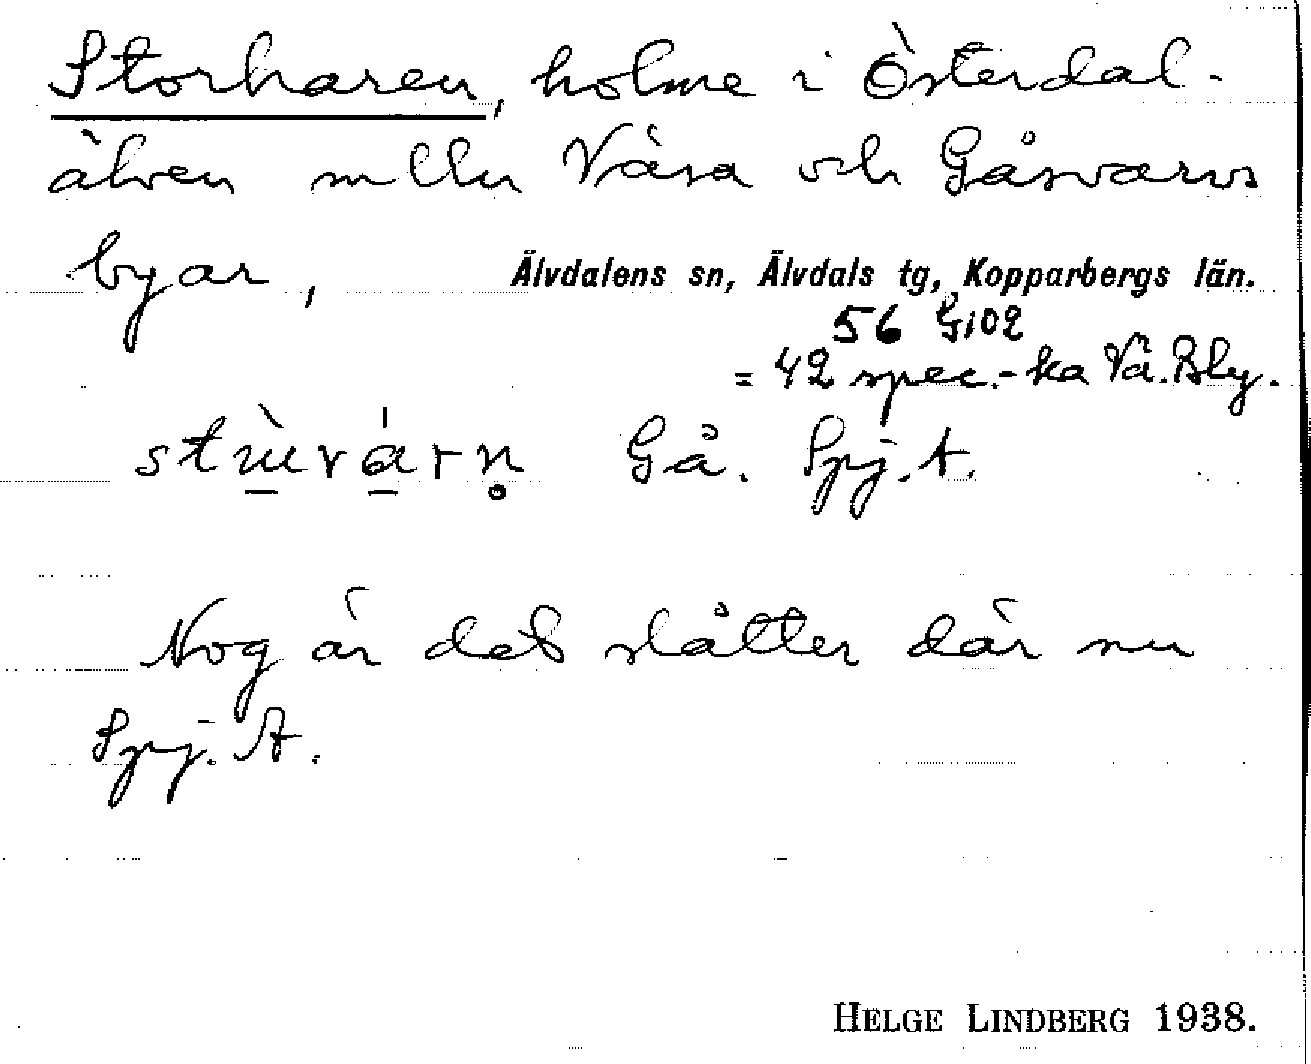 Storharen, holme i Österdal-
älven mellan Väsa och Gåsvarvs
byar, Älvdalens sn, Älvdals tg, Kopparbergs län.
56 G i 02
= 42 spec.-ka Vä. Bly.
Gå. Spj. A.
Nog är det slåtter där nu
Spj. A.
HELGE LINDBERG 1938.